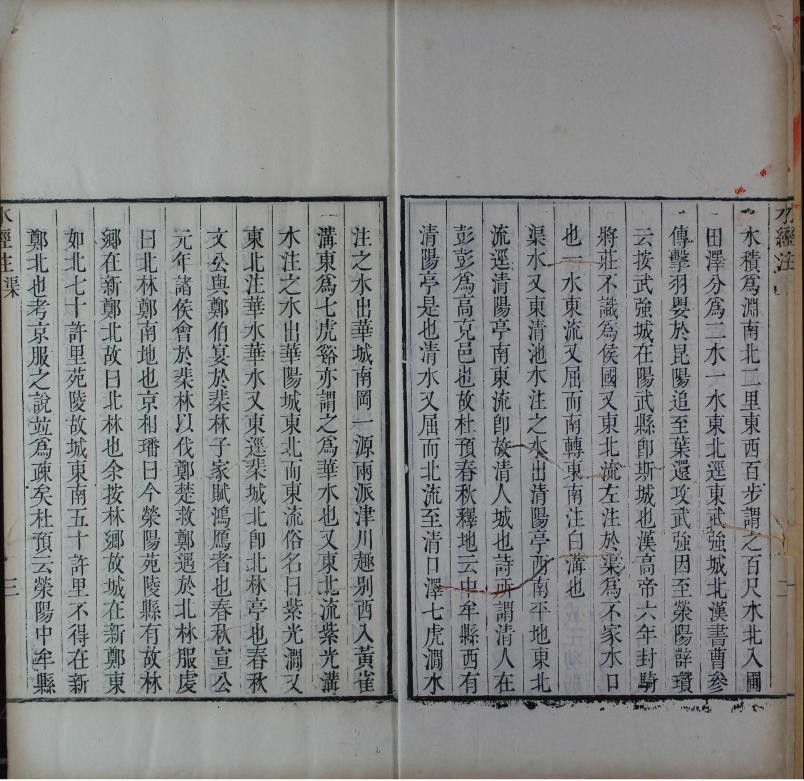 水經注
水積爲淵南北二里東西百步謂之百尺水北入圃
田澤分爲二水一水東北逕東武強城北漢書曹參
傳擊羽嬰於昆陽追至葉還攻武強因至滎陽薛瓚
云按武強城在陽武縣卽斯城也漢高帝六年封騎
將莊不識爲侯國又東北流左注於渠爲不家水口
也一水東流又屈而南轉東南注白溝也
渠水又東清池水注之水出清陽亭西南平地東北
流逕清陽亭南東流卽故清人城也詩所謂清人在
彭彭爲高克邑也故杜預春秋釋地云中牟縣西有
清陽亭是也清水又屈而北流至清口澤七虎澗水
注之水出華城南岡一源兩派津川趣别西入黃雀
溝東爲七虎谿亦謂之爲華水也又東北流紫光溝
水注之水出華陽城東北而東流俗名曰紫光澗又
東北注華水華水又東逕棐城北卽北林亭也春秋
文公與鄭伯宴於棐林子家賦鴻鴈者也春秋宣公
元年諸侯會於棐林以伐鄭楚救鄭遇於北林服虔
曰北林鄭南地也京相璠曰今滎陽苑陵縣有故林
鄉在新鄭北故曰北林也余按林鄉故城在新鄭東
如北七十許里苑陵故城東南五十許里不得在新
鄭北也考京服之說並爲疎矣杜預云滎陽中牟縣
水經注 渠 三